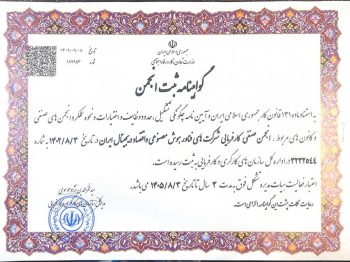 جمهوری اسلامی ایران
وزارت تعاون، کار و رفاه اجتماعی
تاریخ
شماره
گواهینامه ثبت انجمن
به استناد ماده ۱۳۱ قانون کار جمهوری اسلامی ایران و آیین نامه چگونگی تشکیل، حدود وظایف و اختیارات و نحوه عملکرد انجمن های صنفی
و کانون های مربوط، انجمن صنفی کارفرمایی شرکت های فناور هوش مصنوعی و اقتصاد دیجیتال ایران در تاریخ ۱۴۰۲/۸/۳ به شماره
در اداره کل سازمان های کارگری و کارفرمایی به ثبت رسیده است.
اعتبار فعالیت هیات مدیره تشکل فوق به مدت ۳ سال تا تاریخ ۱۴۰۵/۸/۳ می باشد.
رعایت نکات پشت این گواهینامه الزامی است.